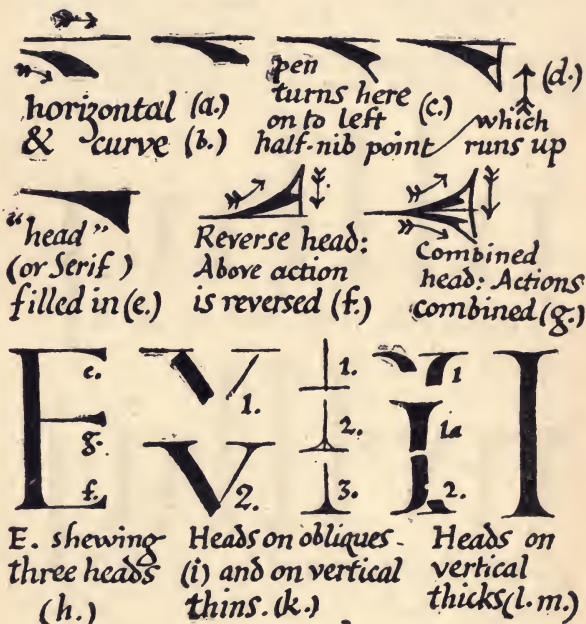 horizontal (a.)
& curve (b.)
pen
turns here
on to left (c.)
half-nib point
(d.)
which
runs up
"head"
(or Serif)
filled in (e.)
Reverse head:
Above action
is reversed (f.)
Combined
head: Actions
combined (g.)
E
e.
g.
f.
V
1.
V
2.
1.
2.
3.
1
1a
2.
I
E. shewing
three heads
(h.)
Heads on obliques
(i) and on vertical
thins. (k.)
Heads on
vertical
thicks (l. m.)